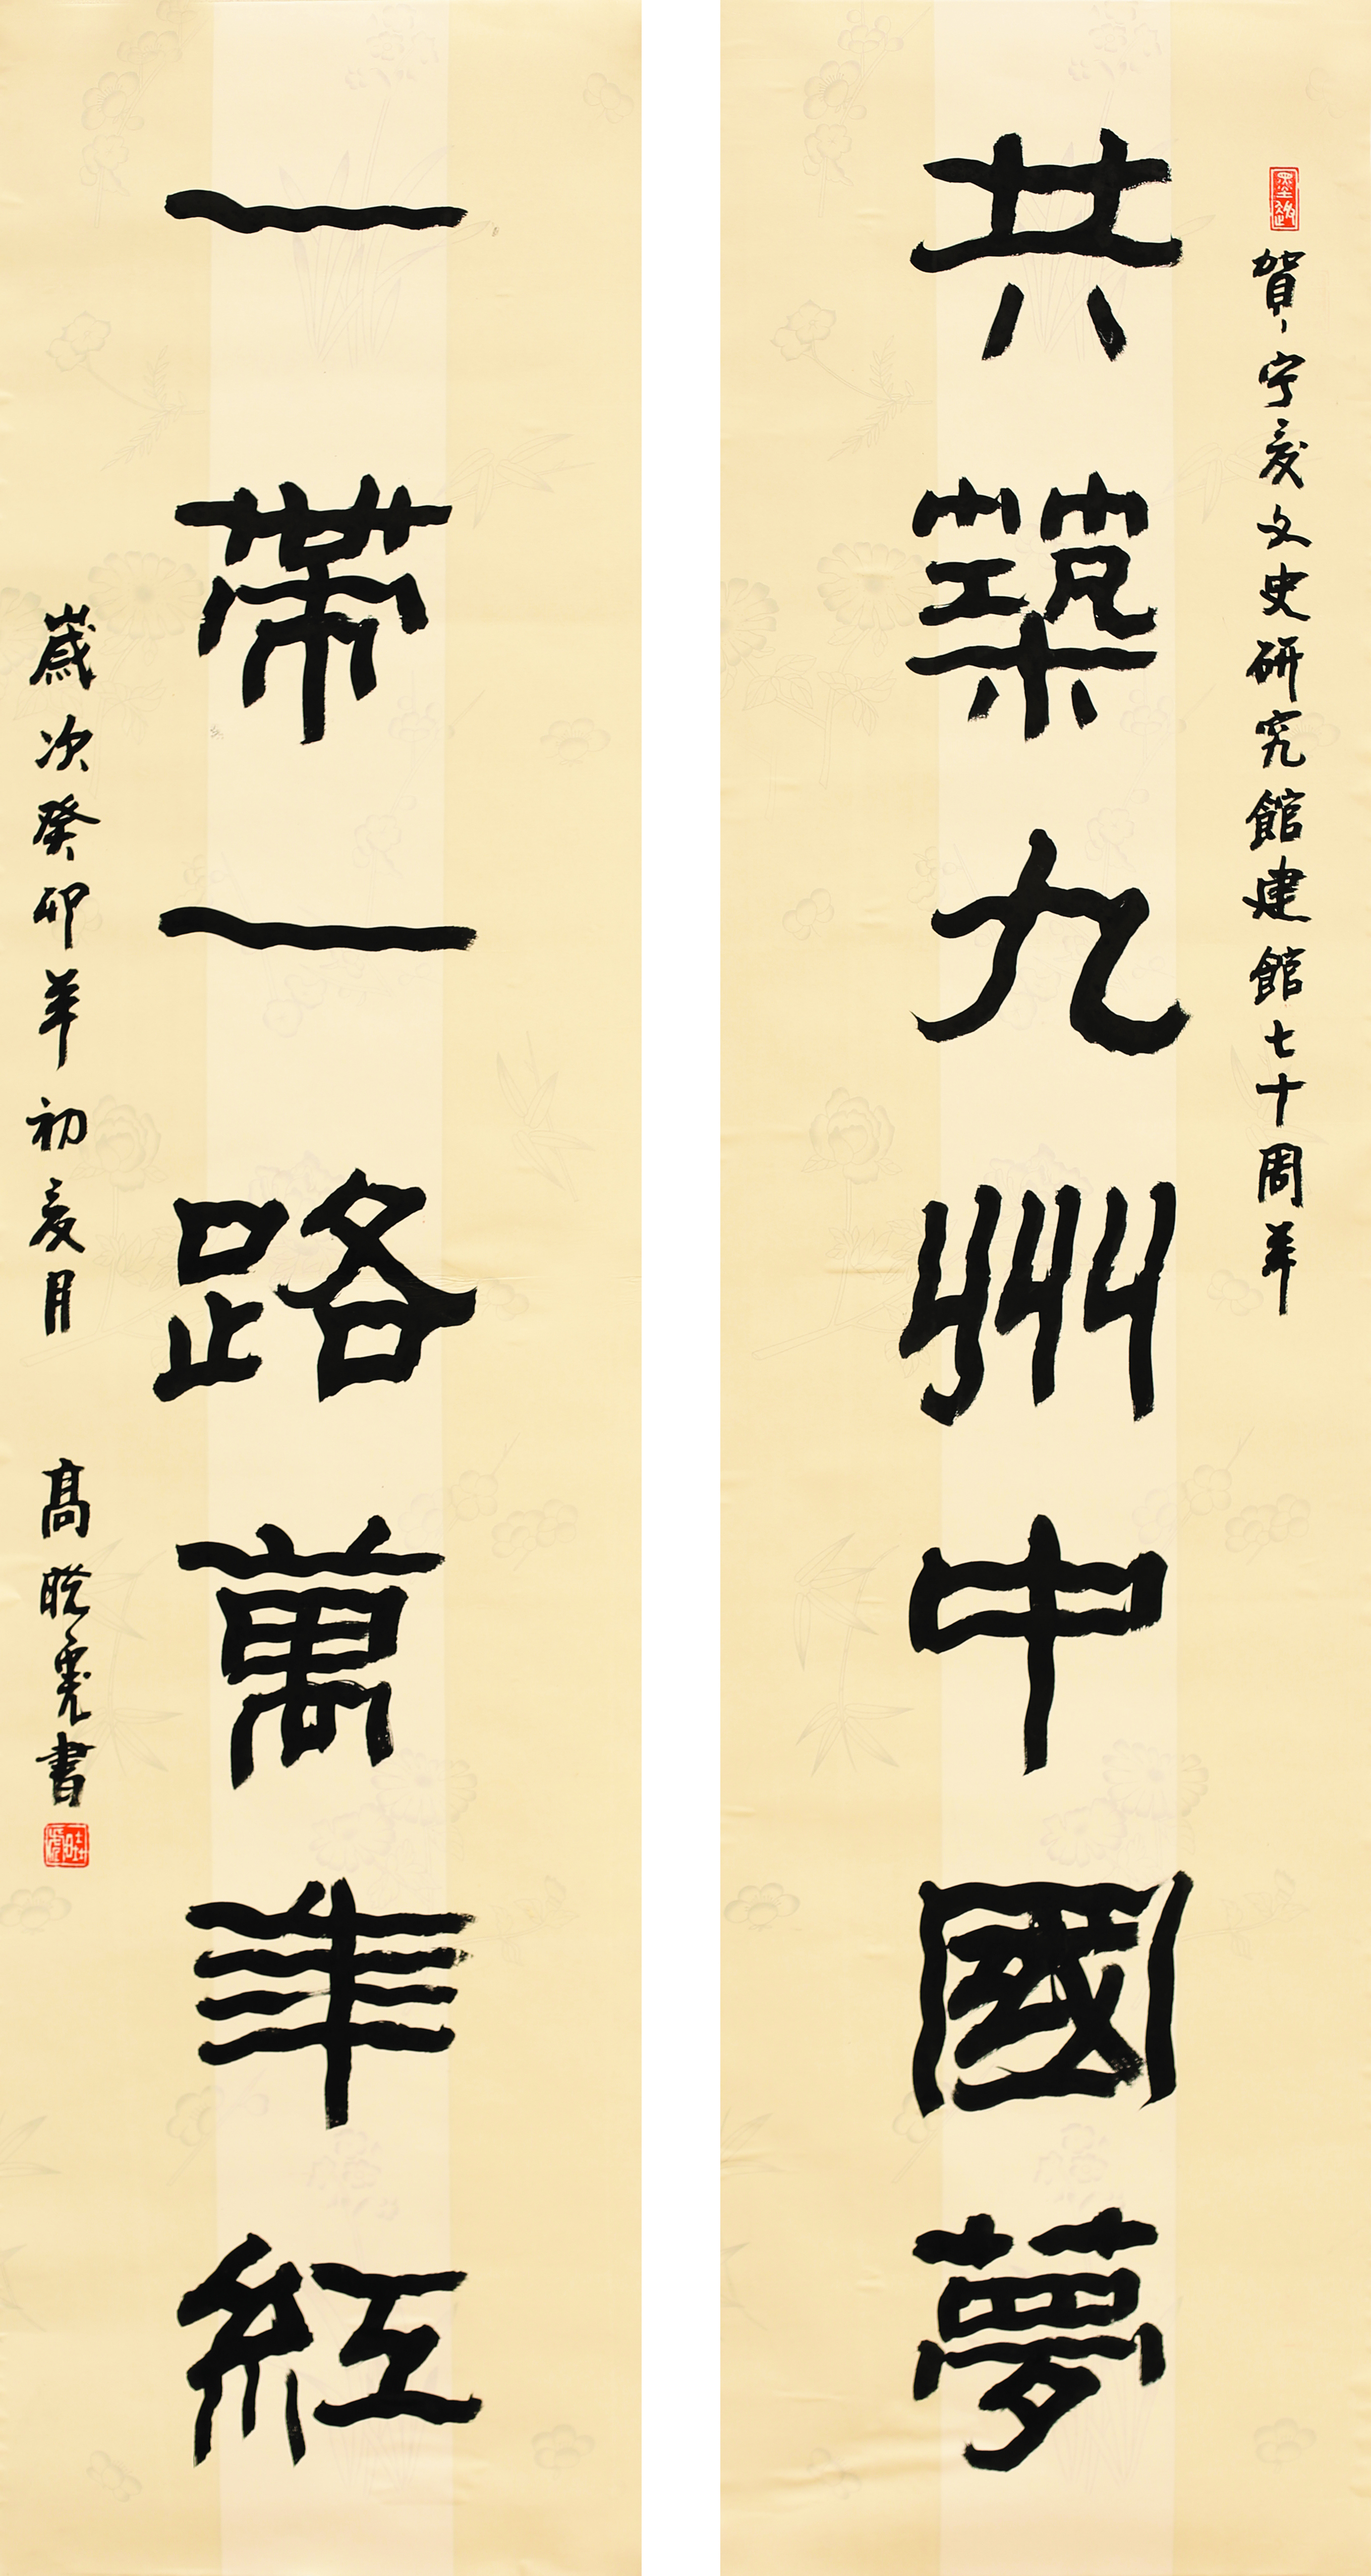 賀宁夏文史研究館建館七十周年
共築九州中國夢
一帶一路萬年紅
歲次癸卯年初夏月 髙書